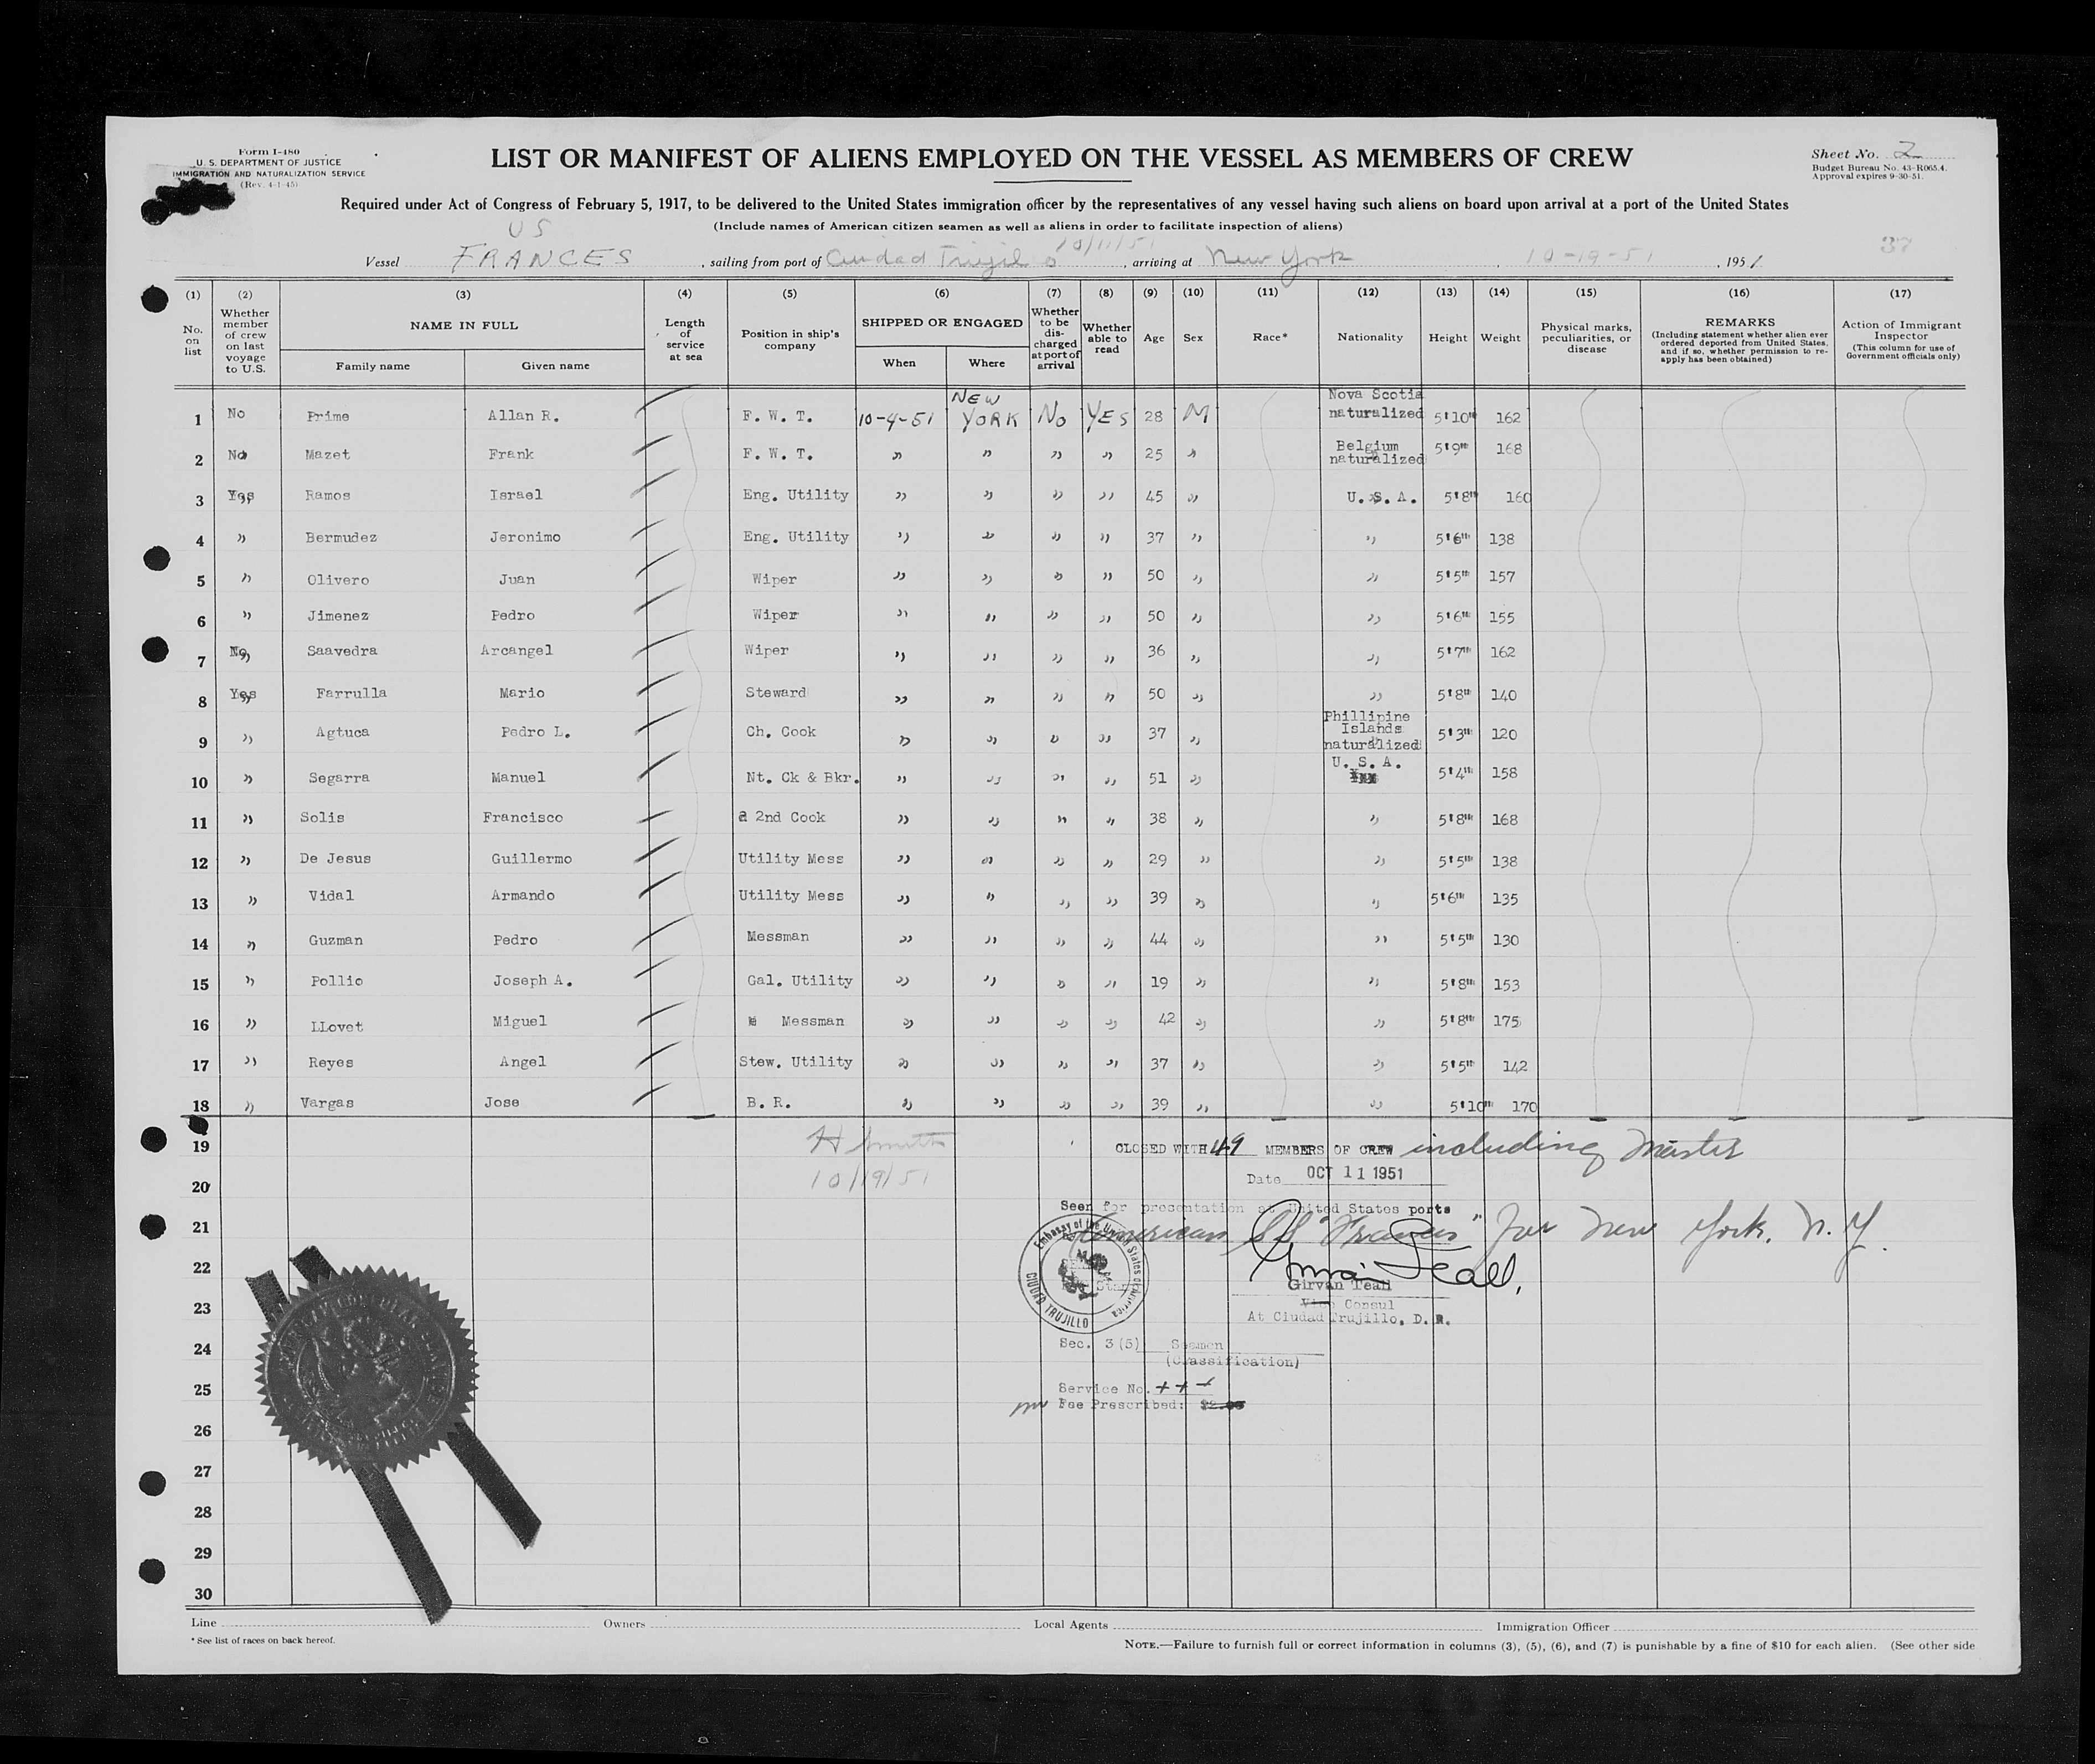 Form I-480
U. S. DEPARTMENT OF JUSTICE
IMMIGRATION AND NATURALIZATION SERVICE
(Rev. 4-1-45)
LIST OR MANIFEST OF ALIENS EMPLOYED ON THE VESSEL AS MEMBERS OF CREW
Sheet No. 2
Budget Bureau No. 43-R065.4.
Approval expires 9-30-51.
Required under Act of Congress of February 5, 1917, to be delivered to the United States immigration officer by the representatives of any vessel having such aliens on board upon arrival at a port of the United States
(Include names of American citizen seamen as well as aliens in order to facilitate inspection of aliens)
US 10/11/51 37
Vessel FRANCES, sailing from port of Ciudad Trujillo, arriving at New York, 10-19-51, 1951
(1) No. on list
(2) Whether member of crew on last voyage to U.S.
(3) NAME IN FULL Family name Given name
(4) Length of service at sea
(5) Position in ship's company
(6) SHIPPED OR ENGAGED When Where
(7) Whether to be discharged at port of arrival
(8) Whether able to read
(9) Age
(10) Sex
(11) Race*
(12) Nationality
(13) Height
(14) Weight
(15) Physical marks, peculiarities, or disease
(16) REMARKS (Including statement whether alien ever ordered deported from United States, and if so, whether permission to re-apply has been obtained)
(17) Action of Immigrant Inspector (This column for use of Government officials only)
1 No Prime Allan R. F. W. T. 10-4-51 NEW YORK No YES 28 M Nova Scotia naturalized 5'10" 162
2 No Mazet Frank F. W. T. " " " " 25 " Belgium naturalized 5'9" 168
3 Yes Ramos Israel Eng. Utility " " " " 45 " U. S. A. 5'8" 160
4 " Bermudez Jeronimo Eng. Utility " " " " 37 " " 5'6" 138
5 " Olivero Juan Wiper " " " " 50 " " 5'5" 157
6 " Jimenez Pedro Wiper " " " " 50 " " 5'6" 155
7 No Saavedra Arcangel Wiper " " " " 36 " " 5'7" 162
8 Yes Farrulla Mario Steward " " " " 50 " " 5'8" 140
9 " Agtuca Pedro L. Ch. Cook " " " " 37 " Phillipine Islands naturalized 5'3" 120
10 " Segarra Manuel Nt. Ck & Bkr. " " " " 51 " U. S. A. 5'4" 158
11 " Solis Francisco 2nd Cook " " " " 38 " " 5'8" 168
12 " De Jesus Guillermo Utility Mess " " " " 29 " " 5'5" 138
13 " Vidal Armando Utility Mess " " " " 39 " " 5'6" 135
14 " Guzman Pedro Messman " " " " 44 " " 5'5" 130
15 " Pollio Joseph A. Gal. Utility " " " " 19 " " 5'8" 153
16 " LLovet Miguel Messman " " " " 42 " " 5'8" 175
17 " Reyes Angel Stew. Utility " " " " 37 " " 5'5" 142
18 " Vargas Jose B. R. " " " " 39 " " 5'10" 170
19 H Smith CLOSED WITH 49 MEMBERS OF CREW including Master
10/19/51
Date OCT 11 1951
20
Seen for presentation at United States ports
21 American SS "Frances" for New York, N.Y.
Embassy of the United States of America
CIUDAD TRUJILLO
22 Girvan Teall
Girvan Teall
23 Vice Consul
At Ciudad Trujillo, D. R.
24 Sec. 3(5) Seamen
(Classification)
25 Service No. +++
Fee Prescribed:
26
27
28
29
30
Line Owners Local Agents Immigration Officer
* See list of races on back hereof.
NOTE.—Failure to furnish full or correct information in columns (3), (5), (6), and (7) is punishable by a fine of $10 for each alien. (See other side